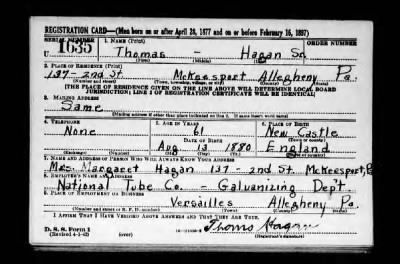 REGISTRATION CARD—(Men born on or after April 28, 1877 and on or before February 16, 1897)
SERIAL NUMBER 1. NAME (Print) ORDER NUMBER
1635 Thomas - Hagan Sr.
2. PLACE OF RESIDENCE (Print)
137 - 2nd St. McKeesport Allegheny Pa.
(Number and street) (Town, township, village, or city) (County) (State)
[THE PLACE OF RESIDENCE GIVEN ON THE LINE ABOVE WILL DETERMINE LOCAL BOARD
JURISDICTION; LINE 2 OF REGISTRATION CERTIFICATE WILL BE IDENTICAL]
3. MAILING ADDRESS
Same
[Mailing address if other than place indicated on line 2. If same insert word same]
4. TELEPHONE 5. AGE IN YEARS 6. PLACE OF BIRTH
None 61 New Castle
DATE OF BIRTH (Town or county)
Aug 13 1880 England
(Exchange) (Number) (Mo.) (Day) (Yr.) (State or country)
7. NAME AND ADDRESS OF PERSON WHO WILL ALWAYS KNOW YOUR ADDRESS
Mrs. Margaret Hagan 137 - 2nd St. McKeesport,
8. EMPLOYER'S NAME AND ADDRESS
National Tube Co. - Galvanizing Dep't.
9. PLACE OF EMPLOYMENT OR BUSINESS
Versailles Allegheny Pa.
(Number and street or R. F. D. number) (Town) (County) (State)
I AFFIRM THAT I HAVE VERIFIED ABOVE ANSWERS AND THAT THEY ARE TRUE.
D. S. S. Form 1
(Revised 4-1-42) (Registrant's signature)
Thomas Hagan